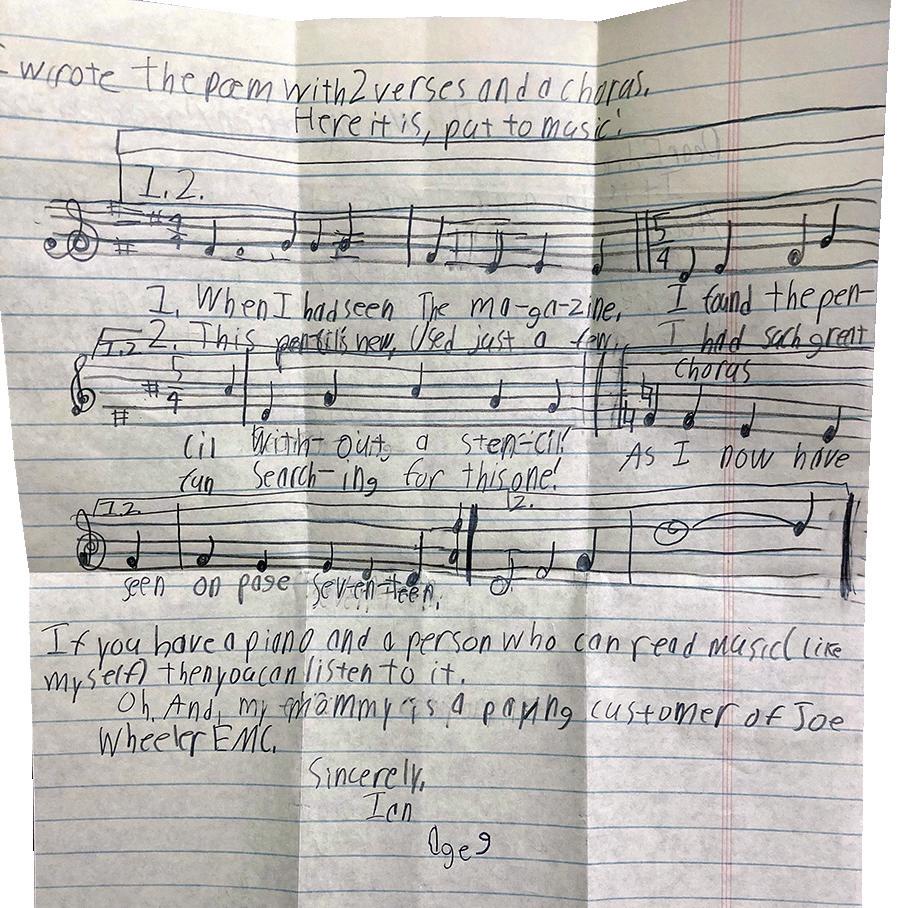 I wrote the poem with 2 verses and a choras.
Here it is, put to music:
1.2.
4
4
5
4
1. When I had seen The ma-ga-zine, I found the pen-
2. This pencil's new, Used just a few, I had such great
1.2
5
4
Choras
cil With-out a sten-cil!
As I now have
fun Search-ing for this one!
1.2.
2.
seen on page sev-en-teen.
If you have a piano and a person who can read music (like
myself) then you can listen to it.
Oh, And, my mammy is a paying customer of Joe
Wheeler EMC.
Sincerely,
Ian
Age 9